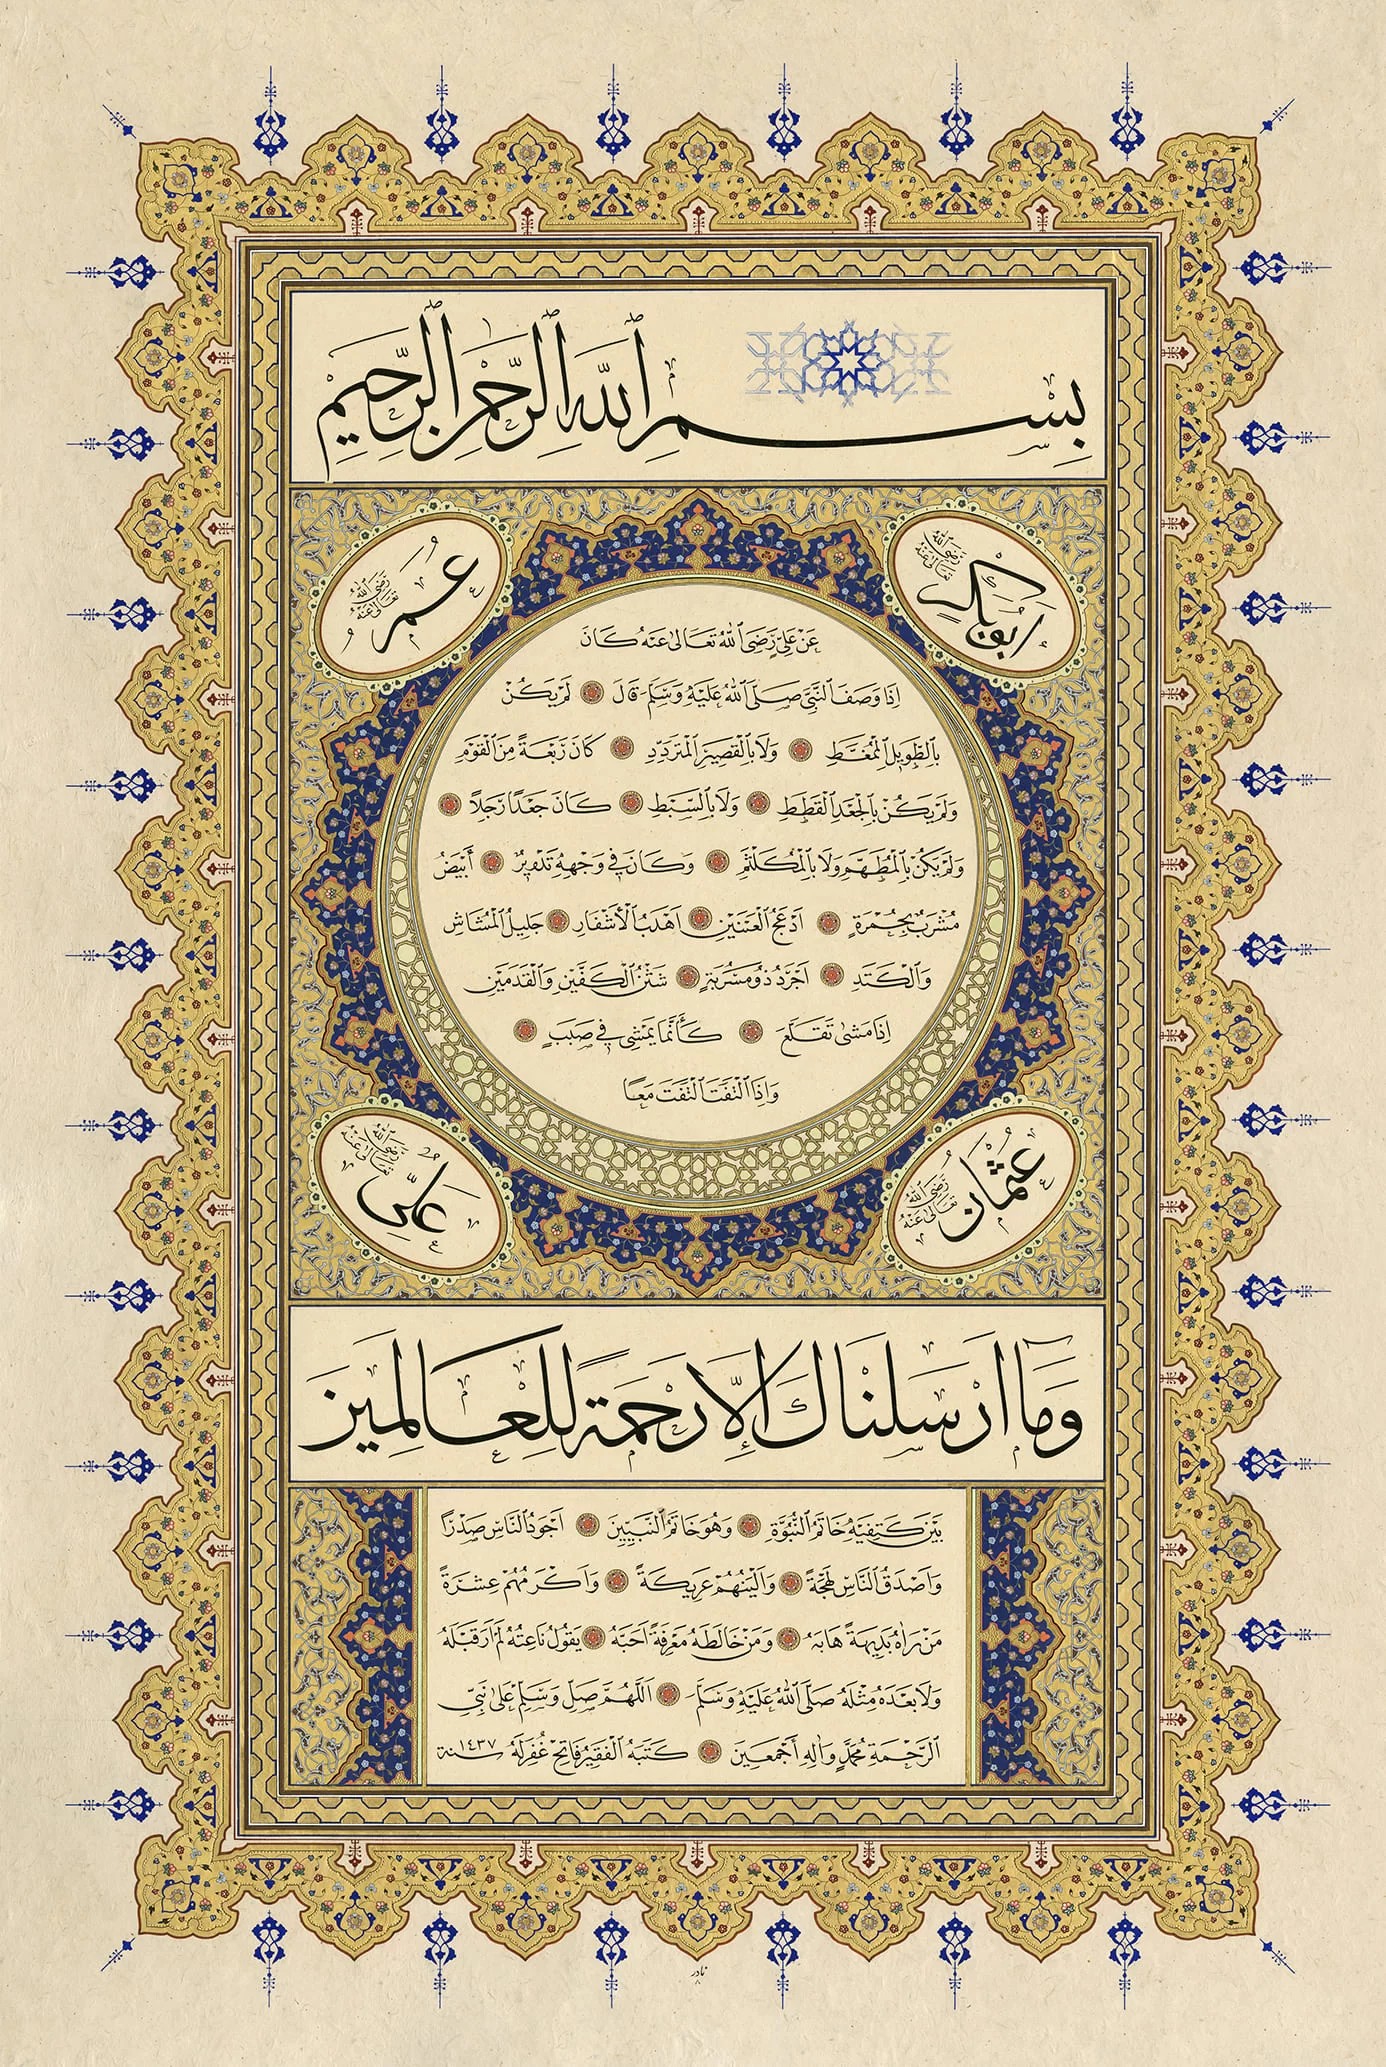 بِسْمِ اللّٰهِ الرَّحْمٰنِ الرَّحِيمِ
ابوبكر رضى الله تعالى عنه
عُمَر رَضِىَ اللّٰهُ تَعَالىٰ عَنْهُ
عَنْ عَلِيٍّ رَضِىَ اللّٰهُ تَعَالىٰ عَنْهُ كَانَ
اِذَا وَصَفَ النَّبِيَّ صَلَّى اللّٰهُ عَلَيْهِ وَسَلَّمَ قَالَ لَمْ يَكُنْ
بِالطَّوِيلِ الْمُمَّغَطِ وَلَا بِالْقَصِيرِ الْمُتَرَدِّدِ كَانَ رَبْعَةً مِنَ الْقَوْمِ
وَلَمْ يَكُنْ بِالْجَعْدِ الْقَطَطِ وَلَا بِالسَّبْطِ كَانَ جَعْدًا رَجِلًا
وَلَمْ يَكُنْ بِالْمُطَهَّمِ وَلَا بِالْمُكَلْثَمِ وَكَانَ فِي وَجْهِهِ تَدْوِيرٌ أَبْيَضُ
مُشْرَبٌ بِحُمْرَةٍ اَدْعَجُ الْعَيْنَيْنِ اَهْدَبُ الْأَشْفَارِ جَلِيلُ الْمُشَاشِ
وَالْكَتَدِ اَجْرَدُ ذُو مَسْرُبَةٍ شَثْنُ الْكَفَّيْنِ وَالْقَدَمَيْنِ
اِذَا مَشىٰ تَقَلَّعَ كَأَنَّمَا يَمْشِي فِي صَبَبٍ
وَاِذَا الْتَفَتَ الْتَفَتَ مَعًا
عُثْمَان رَضِىَ اللّٰهُ تَعَالىٰ عَنْهُ
عَلِيّ رَضِىَ اللّٰهُ تَعَالىٰ عَنْهُ
وَمَا اَرْسَلْنَاكَ اِلَّا رَحْمَةً لِلْعَالَمِينَ
بَيْنَ كَتِفَيْهِ خَاتَمُ النُّبُوَّةِ وَهُوَ خَاتَمُ النَّبِيِّينَ اَجْوَدُ النَّاسِ صَدْرًا
وَاَصْدَقُ النَّاسِ لَهْجَةً وَاَلْيَنُهُمْ عَرِيكَةً وَاَكْرَمُهُمْ عِشْرَةً
مَنْ رَاٰهُ بَدِيهَةً هَابَهُ وَمَنْ خَالَطَهُ مَعْرِفَةً اَحَبَّهُ يَقُولُ نَاعِتُهُ لَمْ اَرَ قَبْلَهُ
وَلَا بَعْدَهُ مِثْلَهُ صَلَّى اللّٰهُ عَلَيْهِ وَسَلَّمَ اَللّٰهُمَّ صَلِّ وَسَلِّمْ عَلىٰ نَبِيِّ
الرَّحْمَةِ مُحَمَّدٍ وَاٰلِهِ أَجْمَعِينَ كَتَبَهُ الْفَقِيرُ فَاتِح غُفِرَ لَهُ سنة ١٤٣٧
نادر